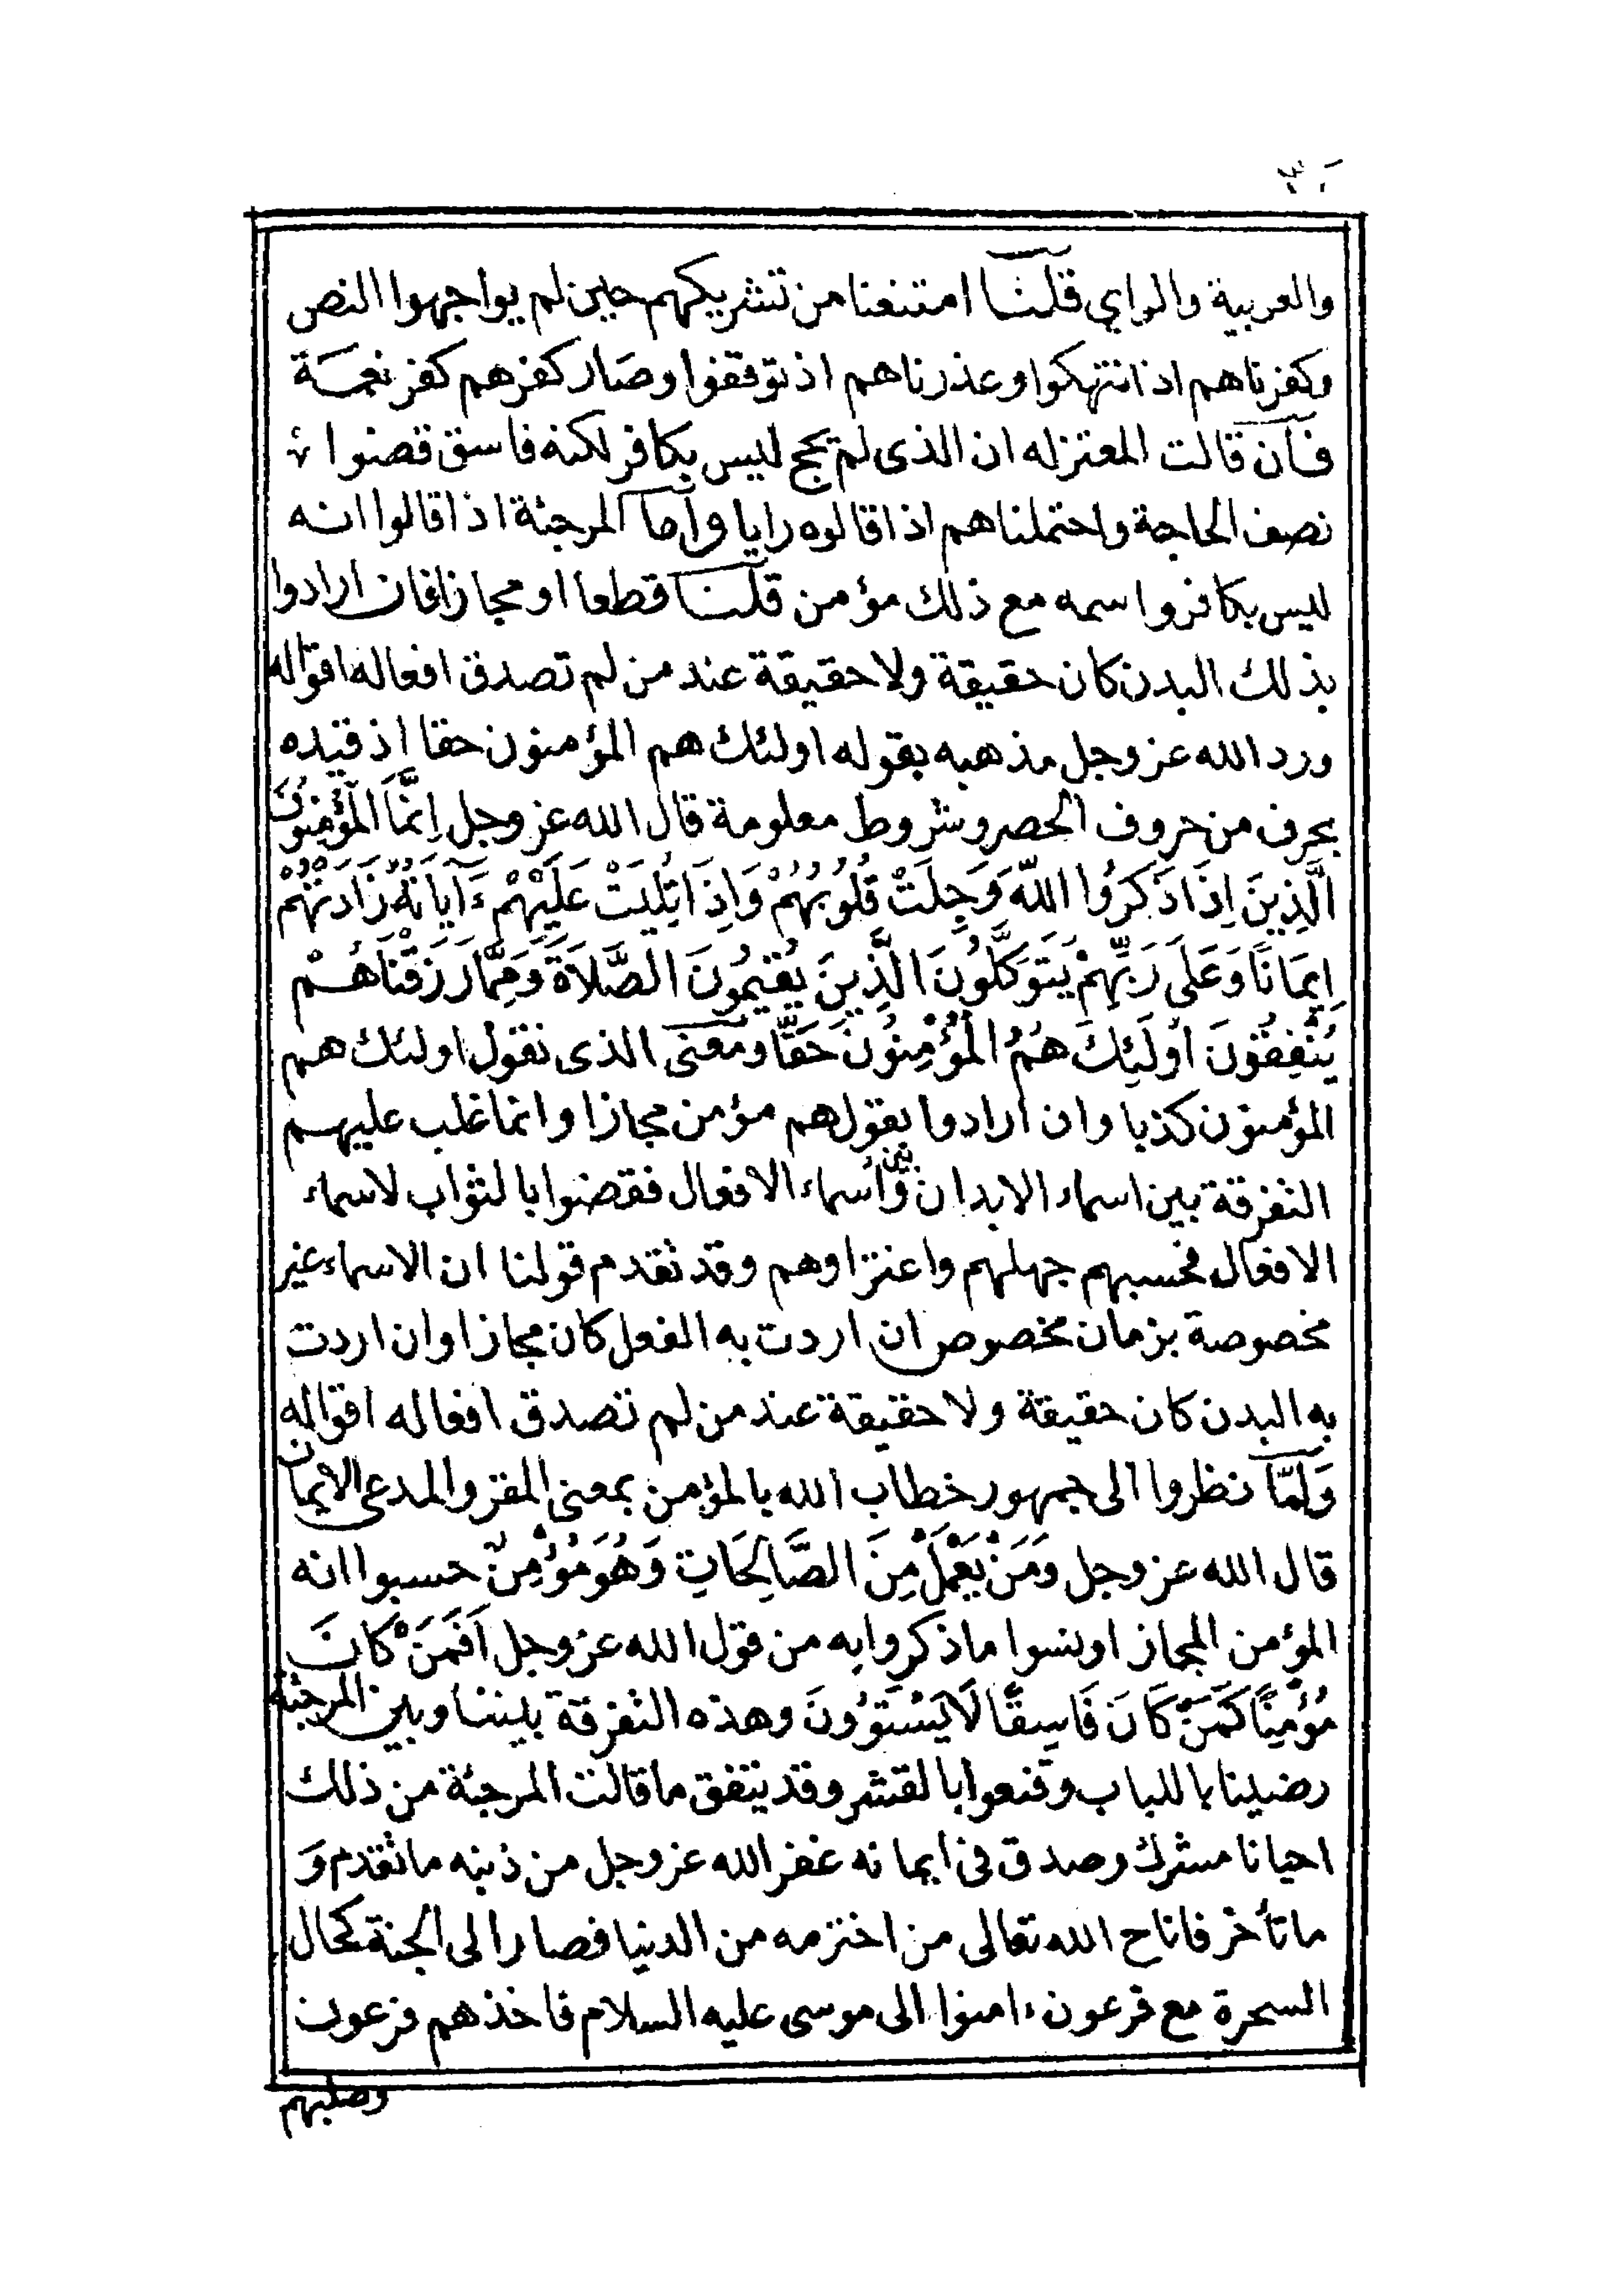 والعربية والراي قلنا امتنعنا من تشريكهم حين لم يواجهوا النص
وكفرناهم اذ انتهكوا وعذرناهم اذ توقفوا وصار كفرهم كفر نعمة
فان قالت المعتزله ان الذى لم يحج ليس بكافر لكنه فاسق قضوا
نصف الحاجة واحتملناهم اذا قالوه رايا واما المرجئة اذا قالوا انه
ليس بكافر واسمه مع ذلك مؤمن قلنا قطعا او مجازا فان ارادوا
بذلك البدن كان حقيقة ولا حقيقة عند من لم تصدق افعاله اقواله
ورد الله عز وجل مذهبه بقوله اولئك هم المؤمنون حقا اذ قيده
بحرف من حروف الحصر وشروط معلومة قال الله عز وجل اِنَّمَا الْمُؤْمِنُونَ
الَّذِينَ اِذَا ذُكِرُوا اللّٰهَ وَجِلَتْ قُلُوبُهُمْ وَاِذَا تُلِيَتْ عَلَيْهِمْ ءَآيَاتُهُ زَادَتْهُمْ
اِيمَانًا وَعَلَى رَبِّهِمْ يَتَوَكَّلُونَ الَّذِينَ يُقِيمُونَ الصَّلَاةَ وَمِمَّا رَزَقْنَاهُمْ
يُنْفِقُونَ اُولَئِكَ هُمُ الْمُؤْمِنُونَ حَقًّا ومعنى الذى نقول اولئك هم
المؤمنون كذبا وان ارادوا بقولهم مؤمن مجازا وانما غلب عليهم
التفرقة بين اسماء الابدان وبين أسماء الافعال فقضوا بالثواب لاسماء
الافعال فحسبهم جهلهم واعتزاوهم وقد تقدم قولنا ان الاسماء غير
مخصوصة بزمان مخصوص ان اردت به الفعل كان مجازا وان اردت
به البدن كان حقيقة ولا حقيقة عند من لم تصدق افعاله اقواله
وَلَمّا نظروا الى جمهور خطاب الله بالمؤمن بمعنى المقر والمدعى الايمان
قال الله عز وجل وَمَنْ يَعْمَلْ مِنَ الصَّالِحَاتِ وَهُوَ مُؤْمِنٌ حسبوا انه
المؤمن المجاز اونسوا ما ذكروا به من قول الله عز وجل اَفَمَنْ كَانَ
مُؤْمِنًا كَمَنْ كَانَ فَاسِقًا لَا يَسْتَوُونَ وهذه التفرقة بيننا وبين المرجئة
رضينا باللباب وقنعوا بالقشر وقد يتفق ما قالت المرجئة من ذلك
احيانا مشرك وصدق فى ايمانه غفر الله عز وجل من ذنبه ما تقدم وَ
ما تأخر فاتاح الله تعالى من اخترمه من الدنيا فصار الى الجنة كحال
السحرة مع فرعون ءامنوا الى موسى عليه السلام فاخذهم فرعون
وصلبهم